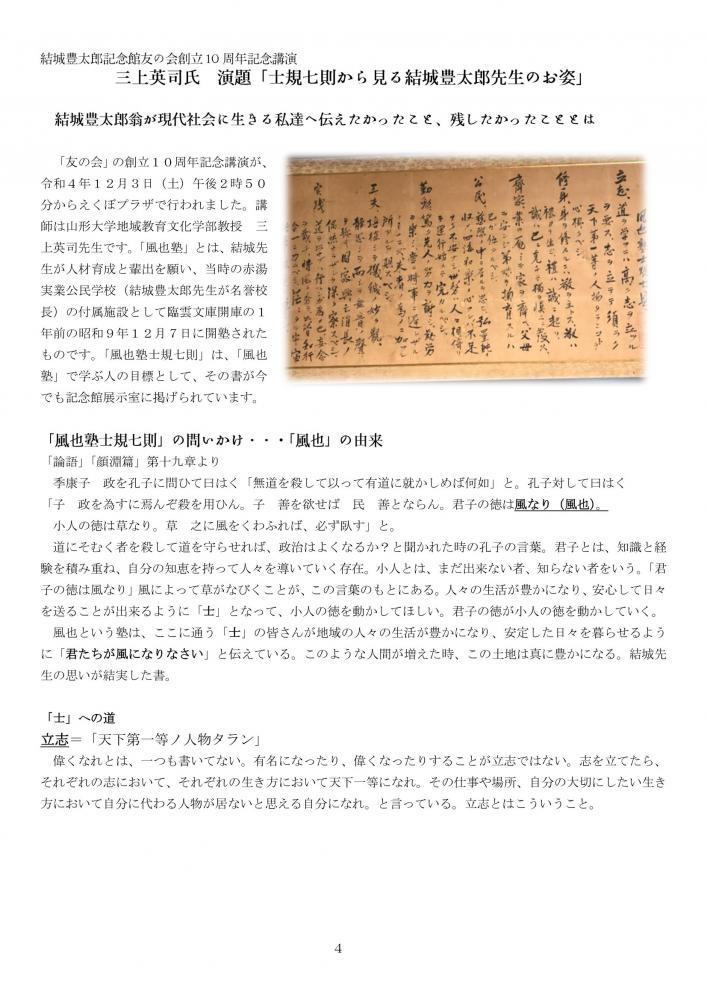 結城豊太郎記念館友の会創立10周年記念講演
三上英司氏　演題「士規七則から見る結城豊太郎先生のお姿」
結城豊太郎翁が現代社会に生きる私達へ伝えたかったこと、残したかったこととは
「友の会」の創立１０周年記念講演が、
令和４年１２月３日（土）午後２時５０
分からえくぼプラザで行われました。講
師は山形大学地域教育文化学部教授　三
上英司先生です。「風也塾」とは、結城先
生が人材育成と輩出を願い、当時の赤湯
実業公民学校（結城豊太郎先生が名誉校
長）の付属施設として臨雲文庫開庫の１
年前の昭和９年１２月７日に開塾された
ものです。「風也塾士規七則」は、「風也
塾」で学ぶ人の目標として、その書が今
でも記念館展示室に掲げられています。
風也塾士規七則
立志、道ヲ学フニハ高ク志ヲ立ツル
天下第一等ノ人物タラン
修身
齊家
公民
勤労
工夫
実践
「風也塾士規七則」の問いかけ・・・「風也」の由来
「論語」「顔淵篇」第十九章より
季康子　政を孔子に問ひて曰はく「無道を殺して以って有道に就かしめば何如」と。孔子対して曰はく
「子　政を為すに焉んぞ殺を用ひん。子　善を欲せば　民　善とならん。君子の徳は風なり（風也）。
小人の徳は草なり。草　之に風をくわふれば、必ず臥す」と。
道にそむく者を殺して道を守らせれば、政治はよくなるか？と聞かれた時の孔子の言葉。君子とは、知識と経
験を積み重ね、自分の知恵を持って人々を導いていく存在。小人とは、まだ出来ない者、知らない者をいう。「君
子の徳は風なり」風によって草がなびくことが、この言葉のもとにある。人々の生活が豊かになり、安心して日々
を送ることが出来るように「士」となって、小人の徳を動かしてほしい。君子の徳が小人の徳を動かしていく。
風也という塾は、ここに通う「士」の皆さんが地域の人々の生活が豊かになり、安定した日々を暮らせるよう
に「君たちが風になりなさい」と伝えている。このような人間が増えた時、この土地は真に豊かになる。結城先
生の思いが結実した書。
「士」への道
立志＝「天下第一等ノ人物タラン」
偉くなれとは、一つも書いてない。有名になったり、偉くなったりすることが立志ではない。志を立てたら、
それぞれの志において、それぞれの生き方において天下一等になれ。その仕事や場所、自分の大切にしたい生き
方において自分に代わる人物が居ないと思える自分になれ。と言っている。立志とはこういうこと。
4